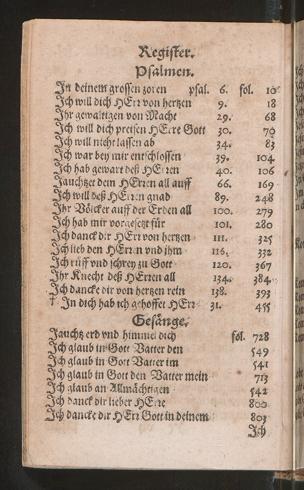 Register.
Psalmen.
In deinem grossen zoren psal. 6. fol. 10
Ich will dich HErr von hertzen 9. 18
Ihr gewaltigen von Macht 29. 68
Ich will dich preisen HErre Gott 30. 70
Ich will nicht lassen ab 34. 83
Ich war bey mir entschlossen 39. 104
Ich hab gewart deß HErren 40. 106
Jauchtzet dem HErren all auff 66. 169
Ich will deß HErren gnad 89. 248
Ihr Völcker auff der Erden all 100. 279
Ich hab mir vorgesetzt für 101. 280
Ich danck dir HErr von hertzen 111. 325
Ich lieb den HErren vnd ihm 116. 332
Ich rüff vnd schrey zu Gott 120. 367
Ihr Knecht deß HErren all 134. 384
Ich dancke dir von hertzen rein 138. 393
In dich hab ich gehoffet HErr 31. 455
Gesänge.
Jauchtz erd vnd himmel dich fol. 728
Ich glaub in Gott Vatter den 549
Ich glaub in Gott Vatter im 541
Ich glaub in Gott den Vatter mein 713
Ich glaub an Allmächtigen 542
Ich danck dir lieber HErre 800
Ich dancke dir HErr Gott in deinem 803
Ich